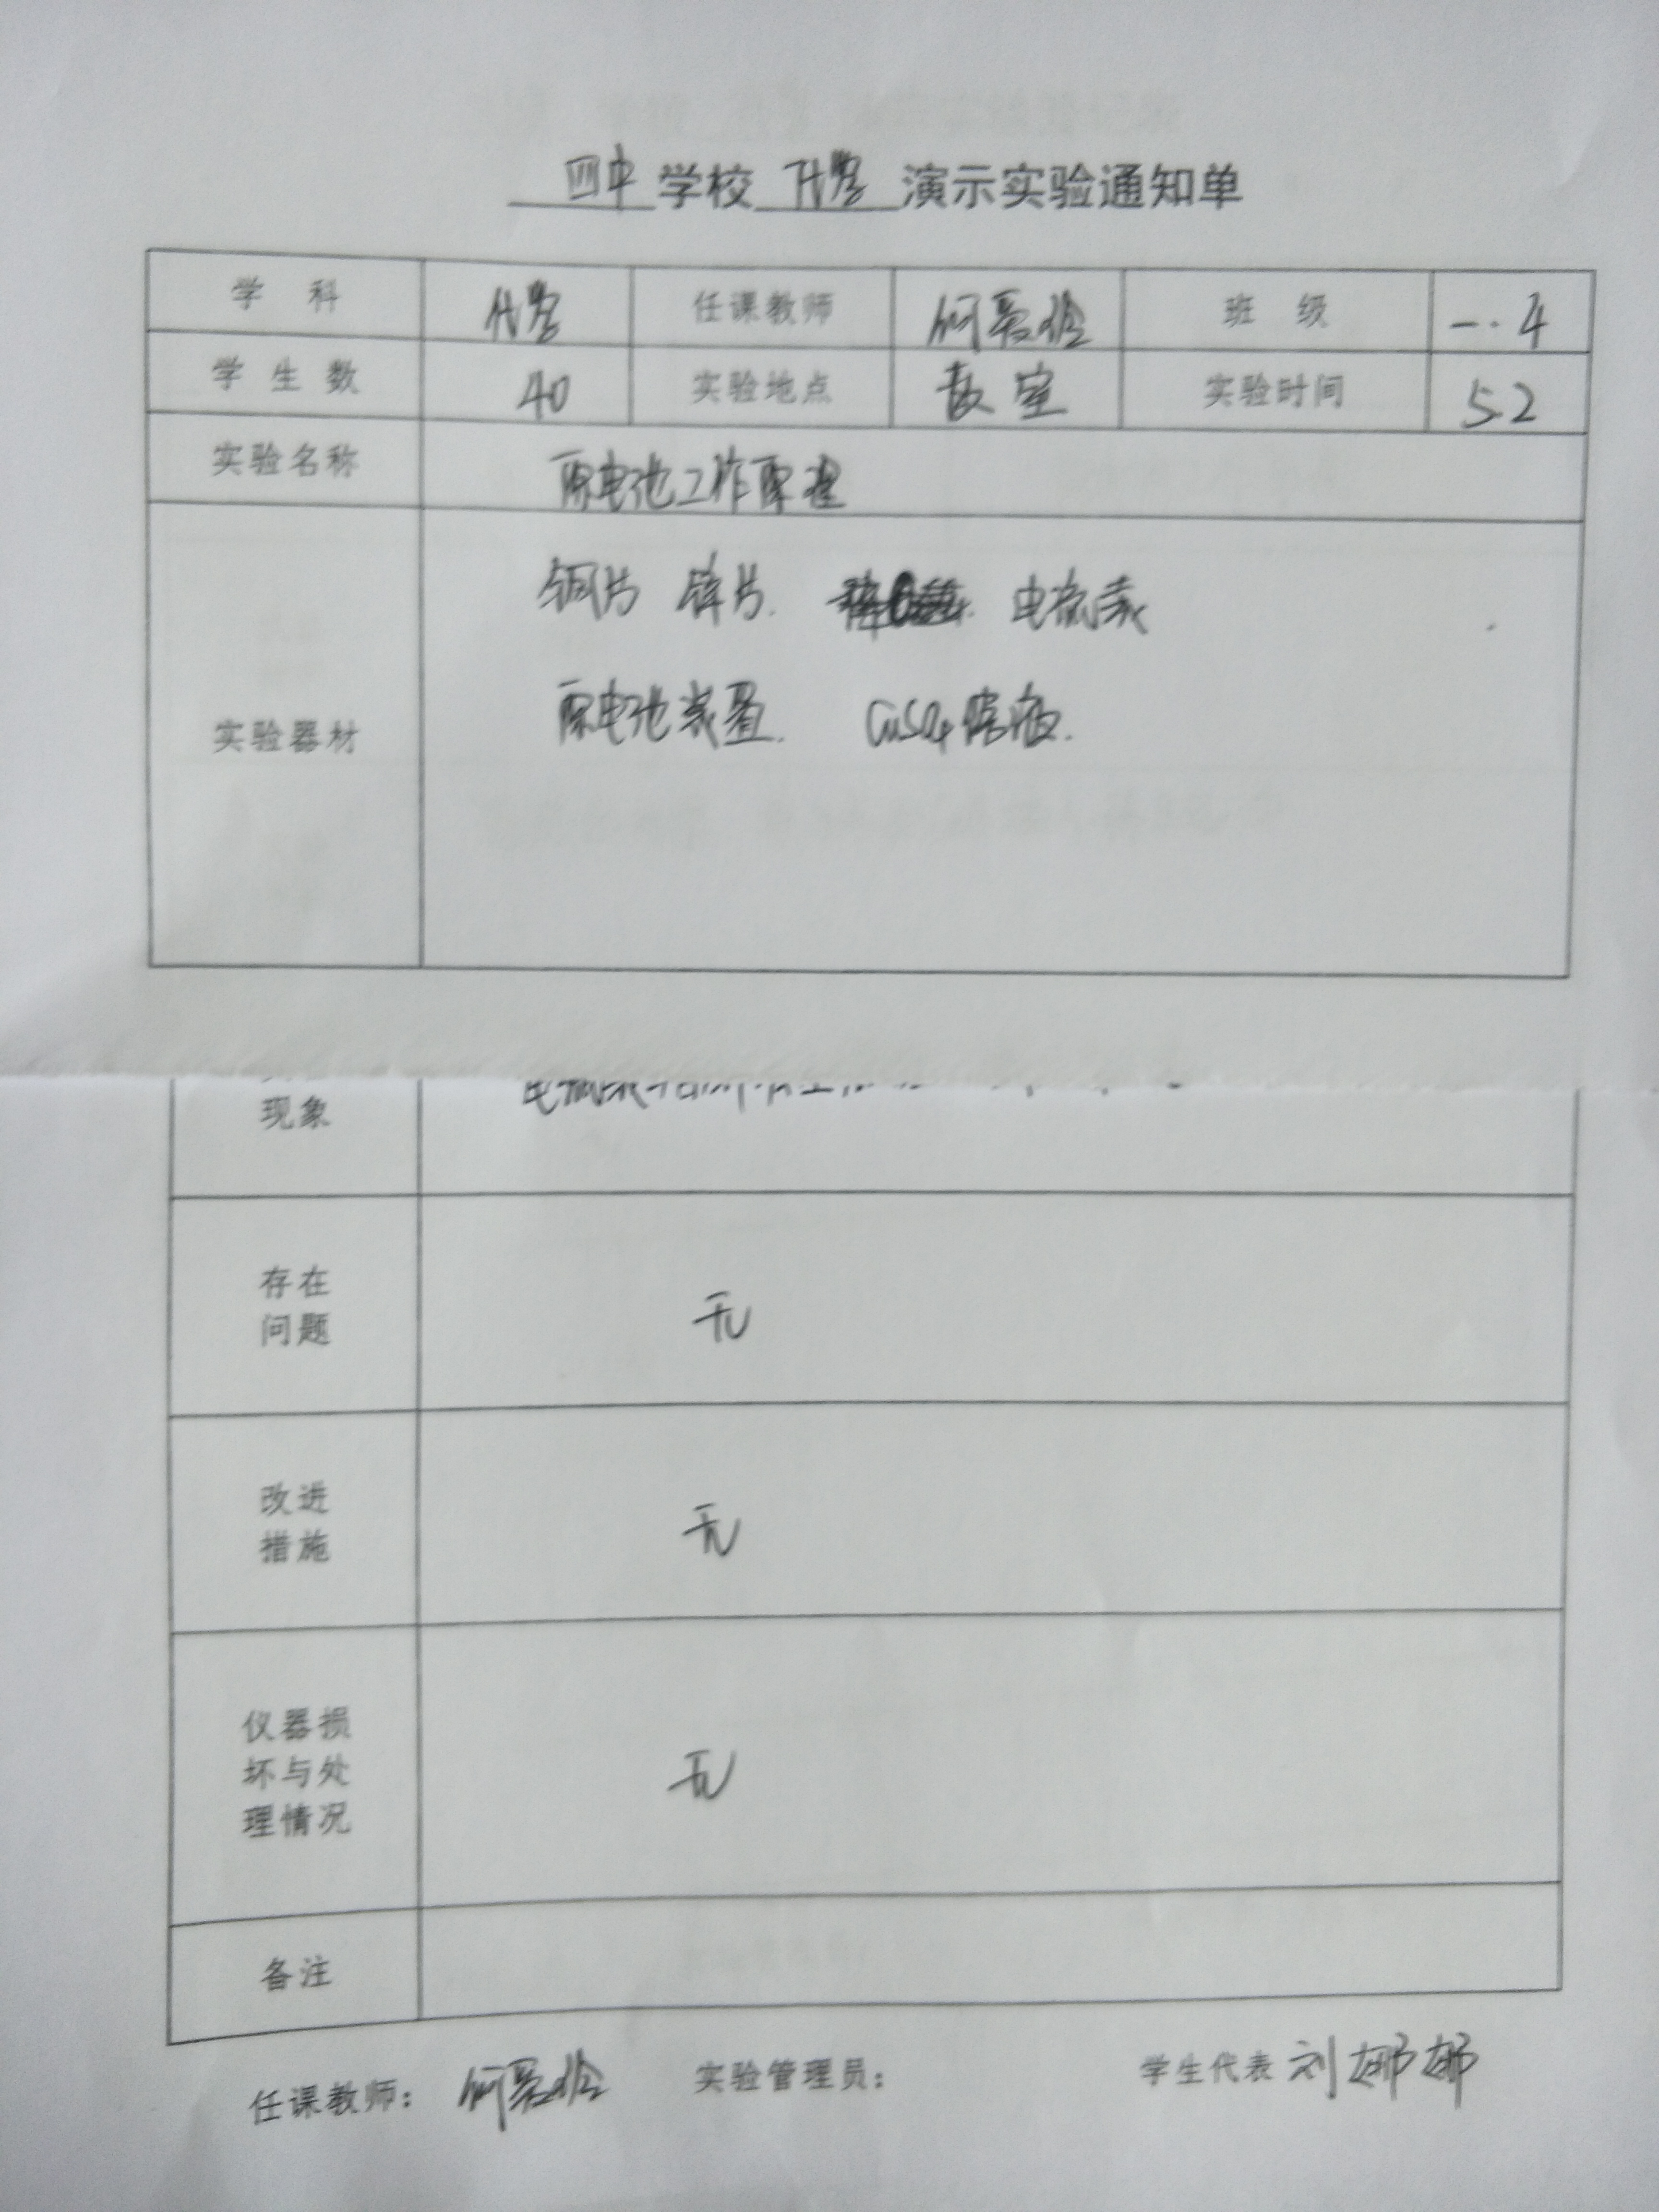 四中学校 化学 演示实验通知单
学 科 化学 任课教师 何爱玲 班 级 一.4
学 生 数 40 实验地点 教室 实验时间 5.2
实验名称 原电池工作原理
铜片 锌片. 电流表
实验器材 原电池装置. CuSO4溶液.
现象
存在
问题 无
改进
措施 无
仪器损
坏与处 无
理情况
备注
任课教师: 何爱玲 实验管理员: 学生代表 刘娜娜